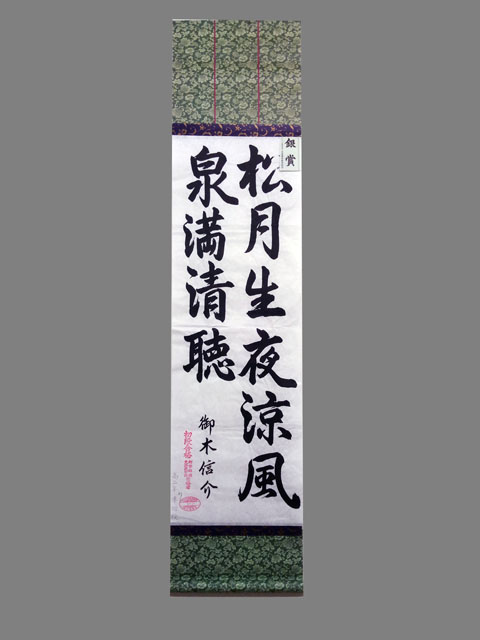 銀賞
松月生夜涼風
泉満清聴
御木信介
初段合格